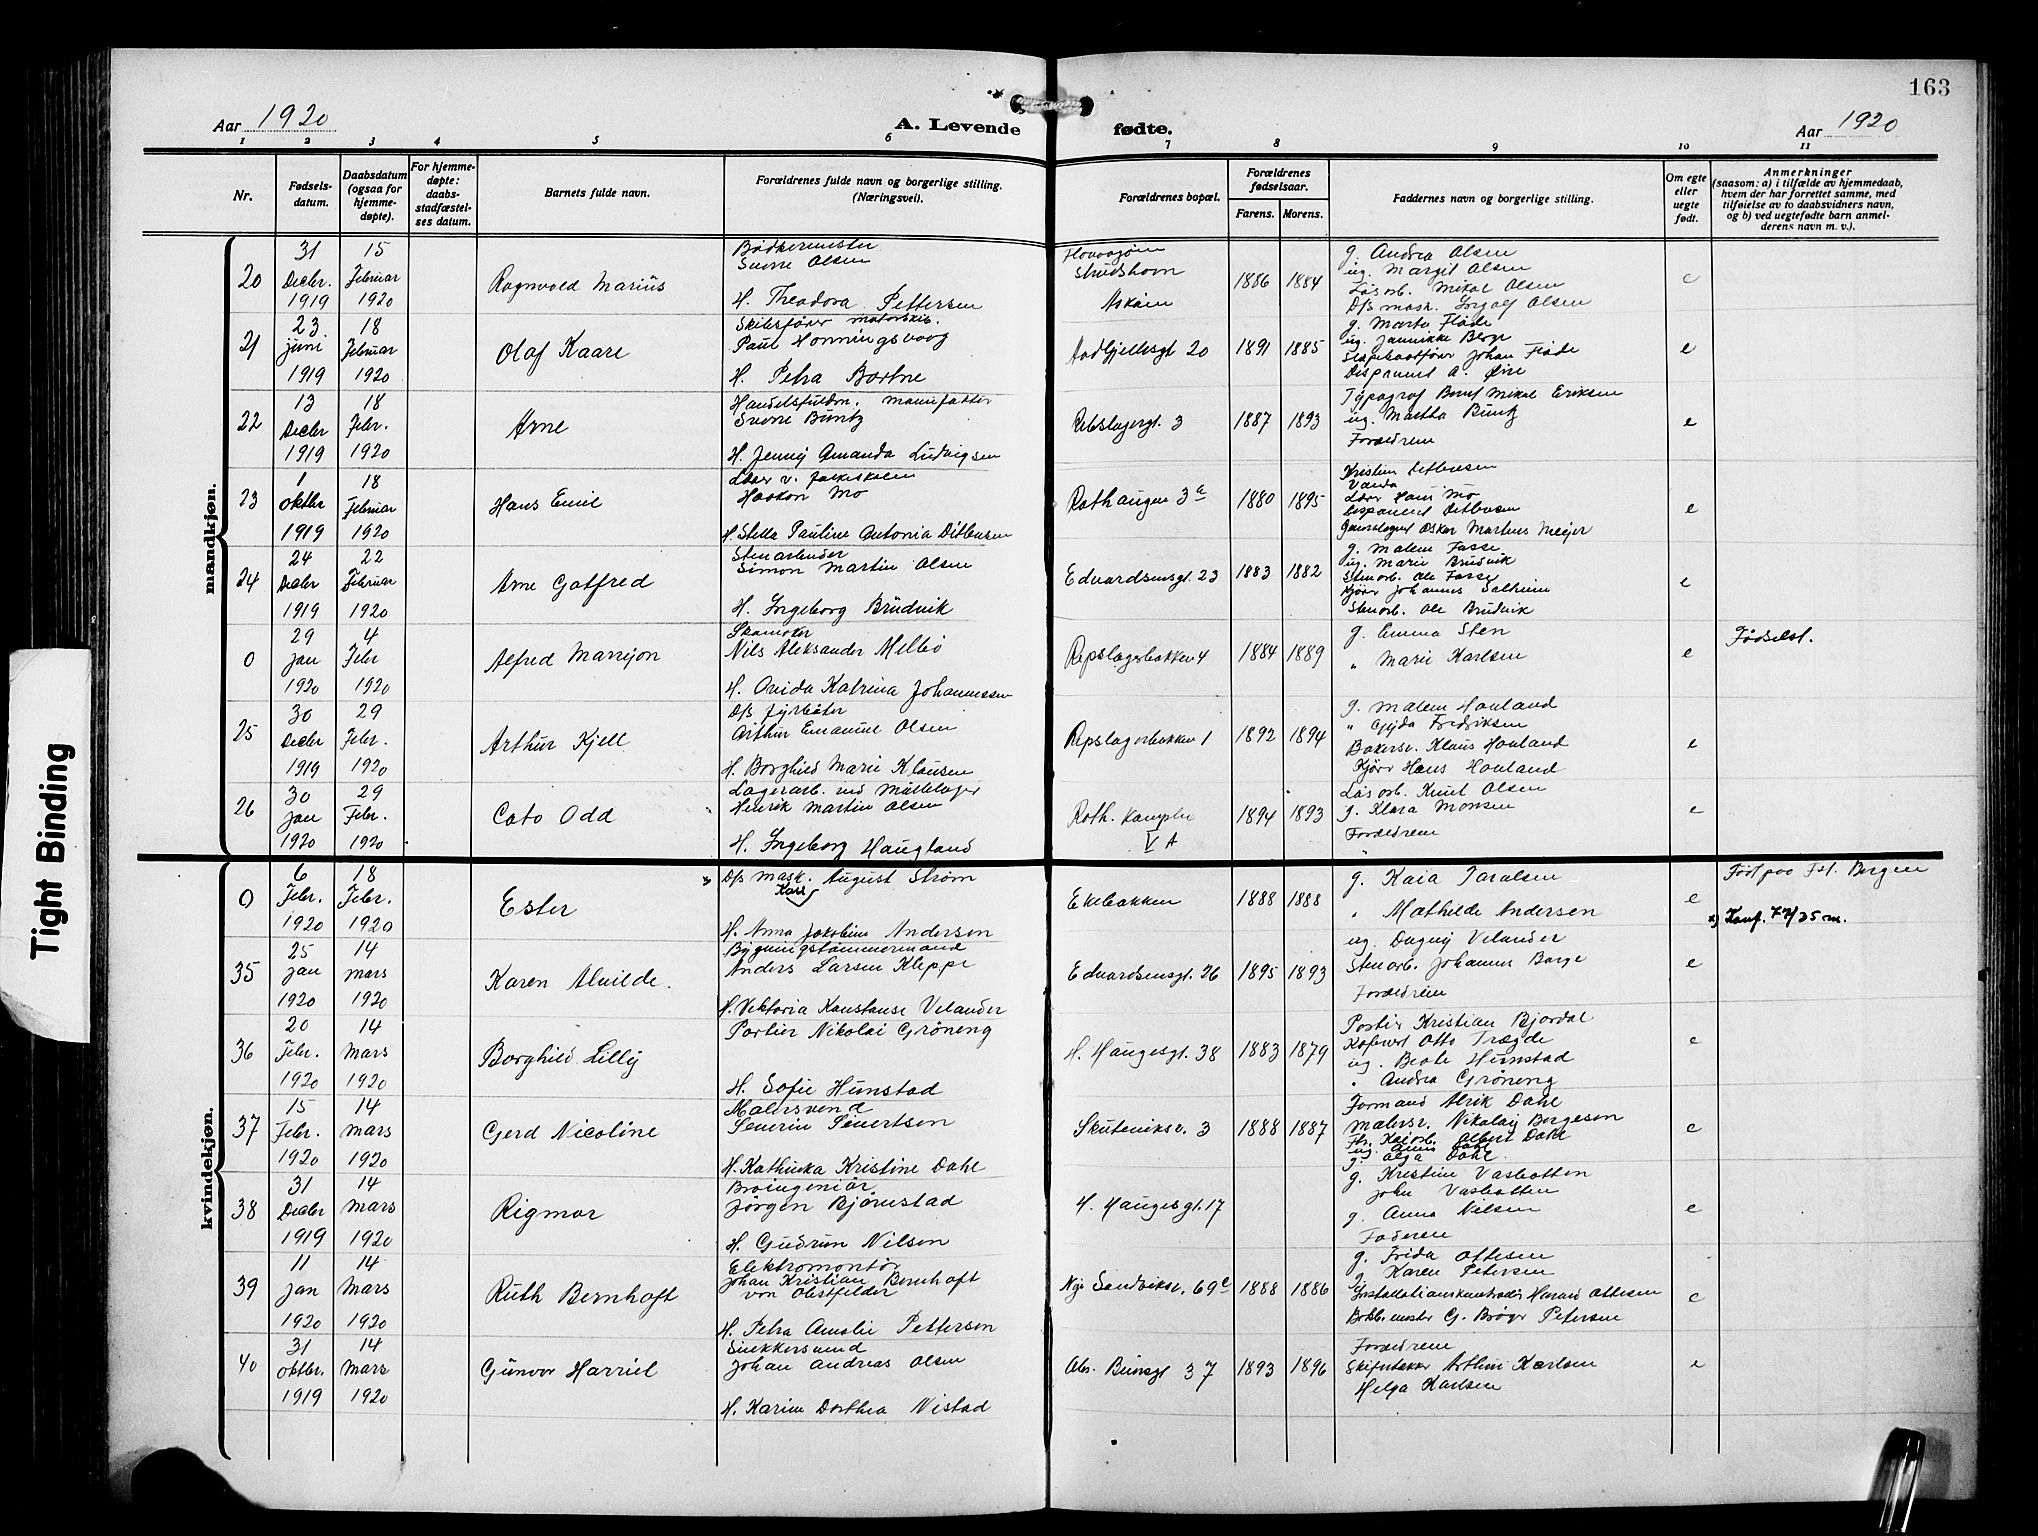 163
Aar 1920
A. Levende
fødte.
Aar 1920
1 2 3 4 5 6 7 8 9 10 11
Nr.
Fødsels-
datum.
Daabsdatum
(ogsaa for
hjemme-
døpte).
For hjemme-
døpte:
daabs-
stadfæstel-
ses datum.
Barnets fulde navn.
Forældrenes fulde navn og borgerlige stilling.
(Næringsvei).
Forældrenes bopæl.
Forældrenes
fødselsaar.
Farens. Morens.
Faddernes navn og borgerlige stilling.
Om egte
eller
uegte
født.
Anmerkninger
(saasom: a) i tilfælde av hjemmedaab,
hvem der har forrettet samme, med
tilføielse av to daabsvidners navn,
og b) ved uegtefødte barn anmel-
derens navn m. v.).
mandkjøn.
20
31
Decbr.
1919
15
Februar
1920
Ragnvald Marius
Bødkermester
Sverre Olsen
H. Theodora Pettersen
Strudshavn
Askøen
1886 1884
g. Andrea Olsen
ug. Margit Olsen
Løsarb. Mikal Olsen
D/s mask. Ingolf Olsen
e
21
23
juni
1919
18
Februar
1920
Olaf Kaare
Skibsfører motorskib.
Paul Honningsvaag
H. Petra Bortne
Aadgjellesgt 20
1891 1885
g. Marta Fløde
ug. Jannikke Berge
Slæpebaatfører Johan Fløde
Disponent A. Øire
e
22
13
Decbr
1919
18
Febr.
1920
Arne
Handelsfuldm. manufaktur
Sverre Buntz
H. Jenny Amanda Ludvigsen
Rebslagergt. 3
1887 1893
Typograf Bernt Mikal Eriksen
ug. Martha Buntz
Forældrene
e
23
1
Oktbr
1919
18
Februar
1920
Hans Emil
Lærer v. folkeskolen
Haakon Mo
H. Stella Pauline Antonia Ditlevsen
Rothaugen 3a
1880 1895
Kristine Ditlevsen
Vanda
Lærer Hans Mo
Disponent Ditlevsen
Oskar Martens Meyer
e
24
24
Decbr
1919
22
Februar
1920
Arne Gotfred
Stenarbeider
Simon Martin Olsen
H. Ingeborg Brudvik
Edvardsensgt. 23
1883 1882
g. Malene Fasse
ug. Marie Brudvik
Stenarb. Ole Fasse
Kjører Johannes Salheim
Stenarb. Ole Brudvik
e
0
29
Jan
1920
4
Febr
1920
Alfred Marrijon
Skomaker
Nils Aleksander Mellbø
H. Ovida Katrina Johannessen
Repslagerbakken 4
1884 1889
g. Emma Sten
" Marie Karlsen
e
Fødselst.
25
30
Decbr
1919
29
Febr.
1920
Arthur Kjell
D/s fyrbøter
Arthur Emanuel Olsen
H. Borghild Marie Klausen
Repslagerbakken 1
1892 1894
g. Malene Hovland
" Gyda Fredriksen
Bakersv. Klaus Hovland
Kjører Hans Hovland
e
26
30
Jan
1920
29
Febr.
1920
Cato Odd
Lagerarb. ved Møllelager
Henrik Martin Olsen
H. Ingeborg Haugland
Roth. kompleks
V A
1894 1893
Løsarb. Knut Olsen
g. Klara Monsen
Forældrene
e
kvindekjøn.
0
6
Febr.
1920
18
Febr.
1920
Ester
D/s mask. August Strøm
Karl
H. Anna Jakobine Andersen
Ekebakken
1888 1888
g. Kaia Taralsen
" Mathilde Andersen
e
Født paa Fst. Bergen
x) Konf.
35
25
Jan
1920
14
Mars
1920
Karen Alvilde.
Bygningstømmermand
Anders Larsen Kleppe
H. Viktoria Konstanse Velander
Edvardsensgt. 26
1895 1893
ug. Dagny Velander
Stenarb. Johannes Borge
Forældrene
e
36
20
Febr.
1920
14
Mars
1920
Borghild Lilly
Portier Nikolai Grøneng
H. Sofie Hunstad
H. Haugesgt. 38
1883 1879
Portier Kristian Bjordal
Otto Trægde
ug. Beate Hunstad
" Andrea Grøneng
e
37
15
Febr.
1920
14
Mars
1920
Gerd Nicoline
Malersvend
Severin Sivertsen
H. Kathinka Kristine Dahl
Skuteviksv. 3
1888 1887
Formand Alrik Dahl
Malersv. Nikolay Børgesen
Albert Dahl
ug. Anna Dahl
g. Olga Dahl.
e
38
31
Decbr
1919
14
Mars
1920
Rigmor
Broingeniør
Jørgen Bjørnstad
H. Gudrun Nilsen
H. Haugesgt. 17
g. Kristine Vasbotten
John Vasbotten
g. Anna Nilsen
Faderen
e
39
11
Jan
1920
14
Mars
1920
Ruth Bernhoft
Elektromontør
Johan Kristian Bernhoft
von Obstfelder
H. Petra Amalie Pettersen
Nye Sandviksv. 69c
1888 1886
g. Frida Ottesen
g. Karen Petersen
Harald Ottesen
G. Brøgr Petersen
e
40
31
Oktbr.
1919
14
Mars
1920
Gunvor Harriet
Snekkersvend
Johan Andreas Olsen
H. Karine Dorthea Nistad
Abr. Bunsgt 37
1893 1896
Forældrene
Skifertækker Arthur Karlsen
Helga Karlsen
e
Tight Binding